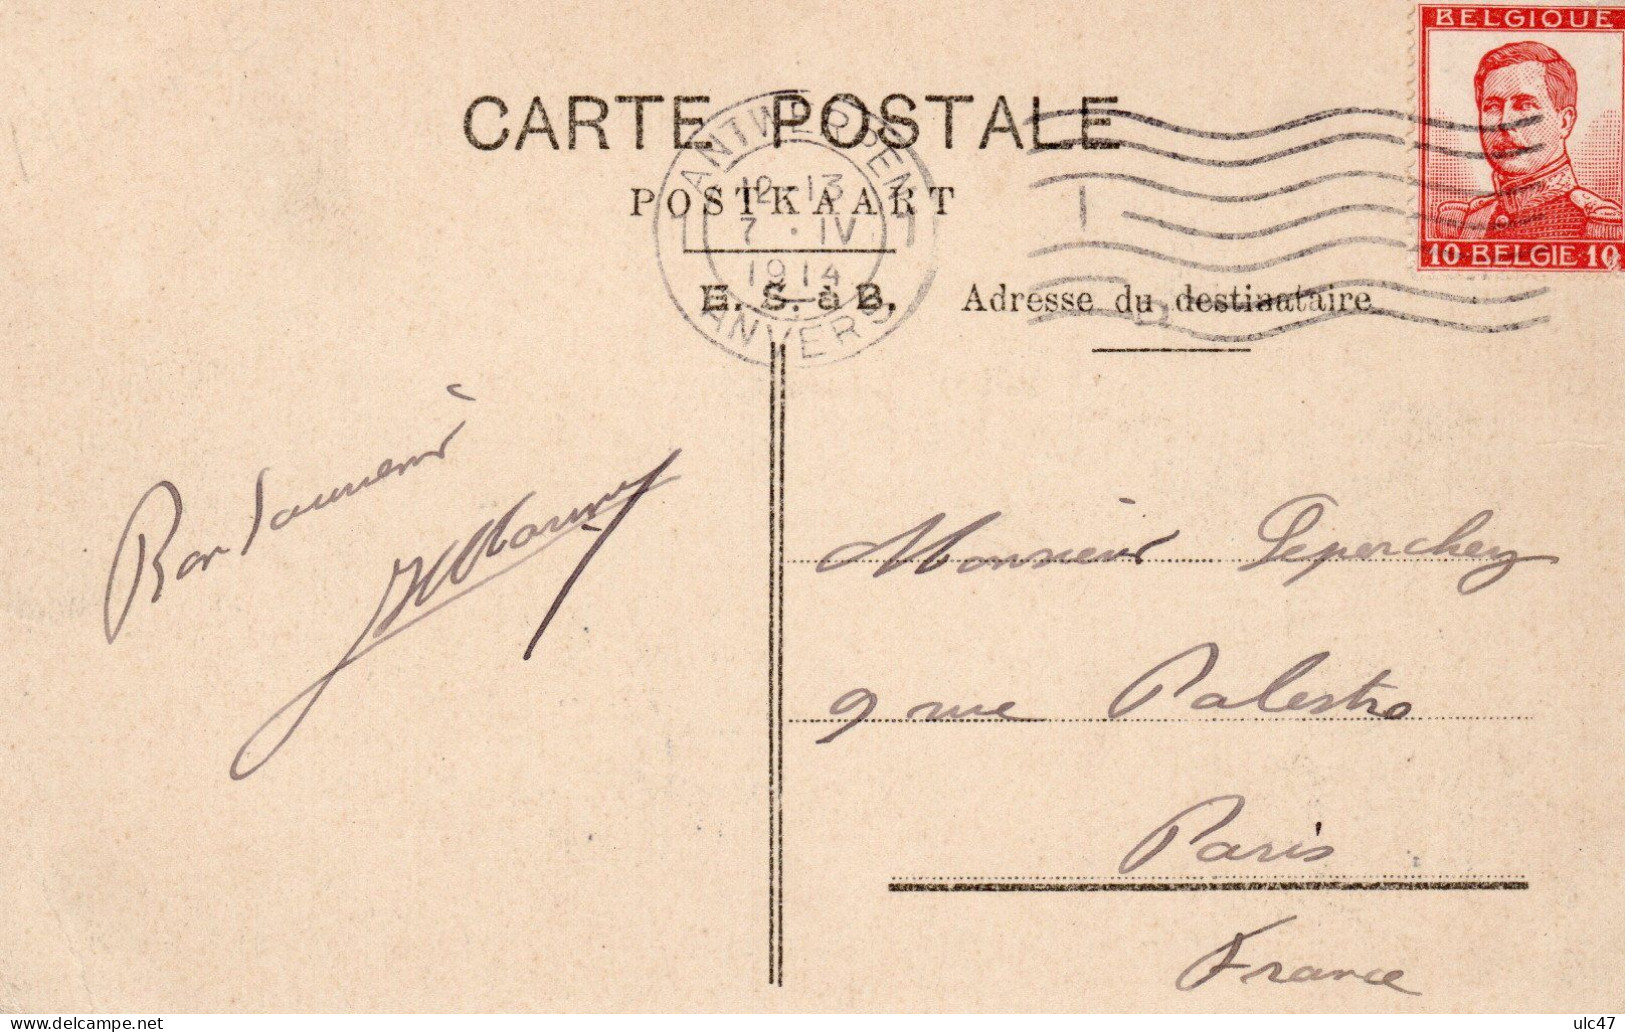 BELGIQUE
10 BELGIE 10
CARTE POSTALE
ANTWERPEN
12-13
7·IV
1914
ANVERS
POSTKAART
E. S. à B.
Adresse du destinataire
Bon Souvenir
Monsieur Peperchey
9 rue Palestro
Paris
France
ulc47